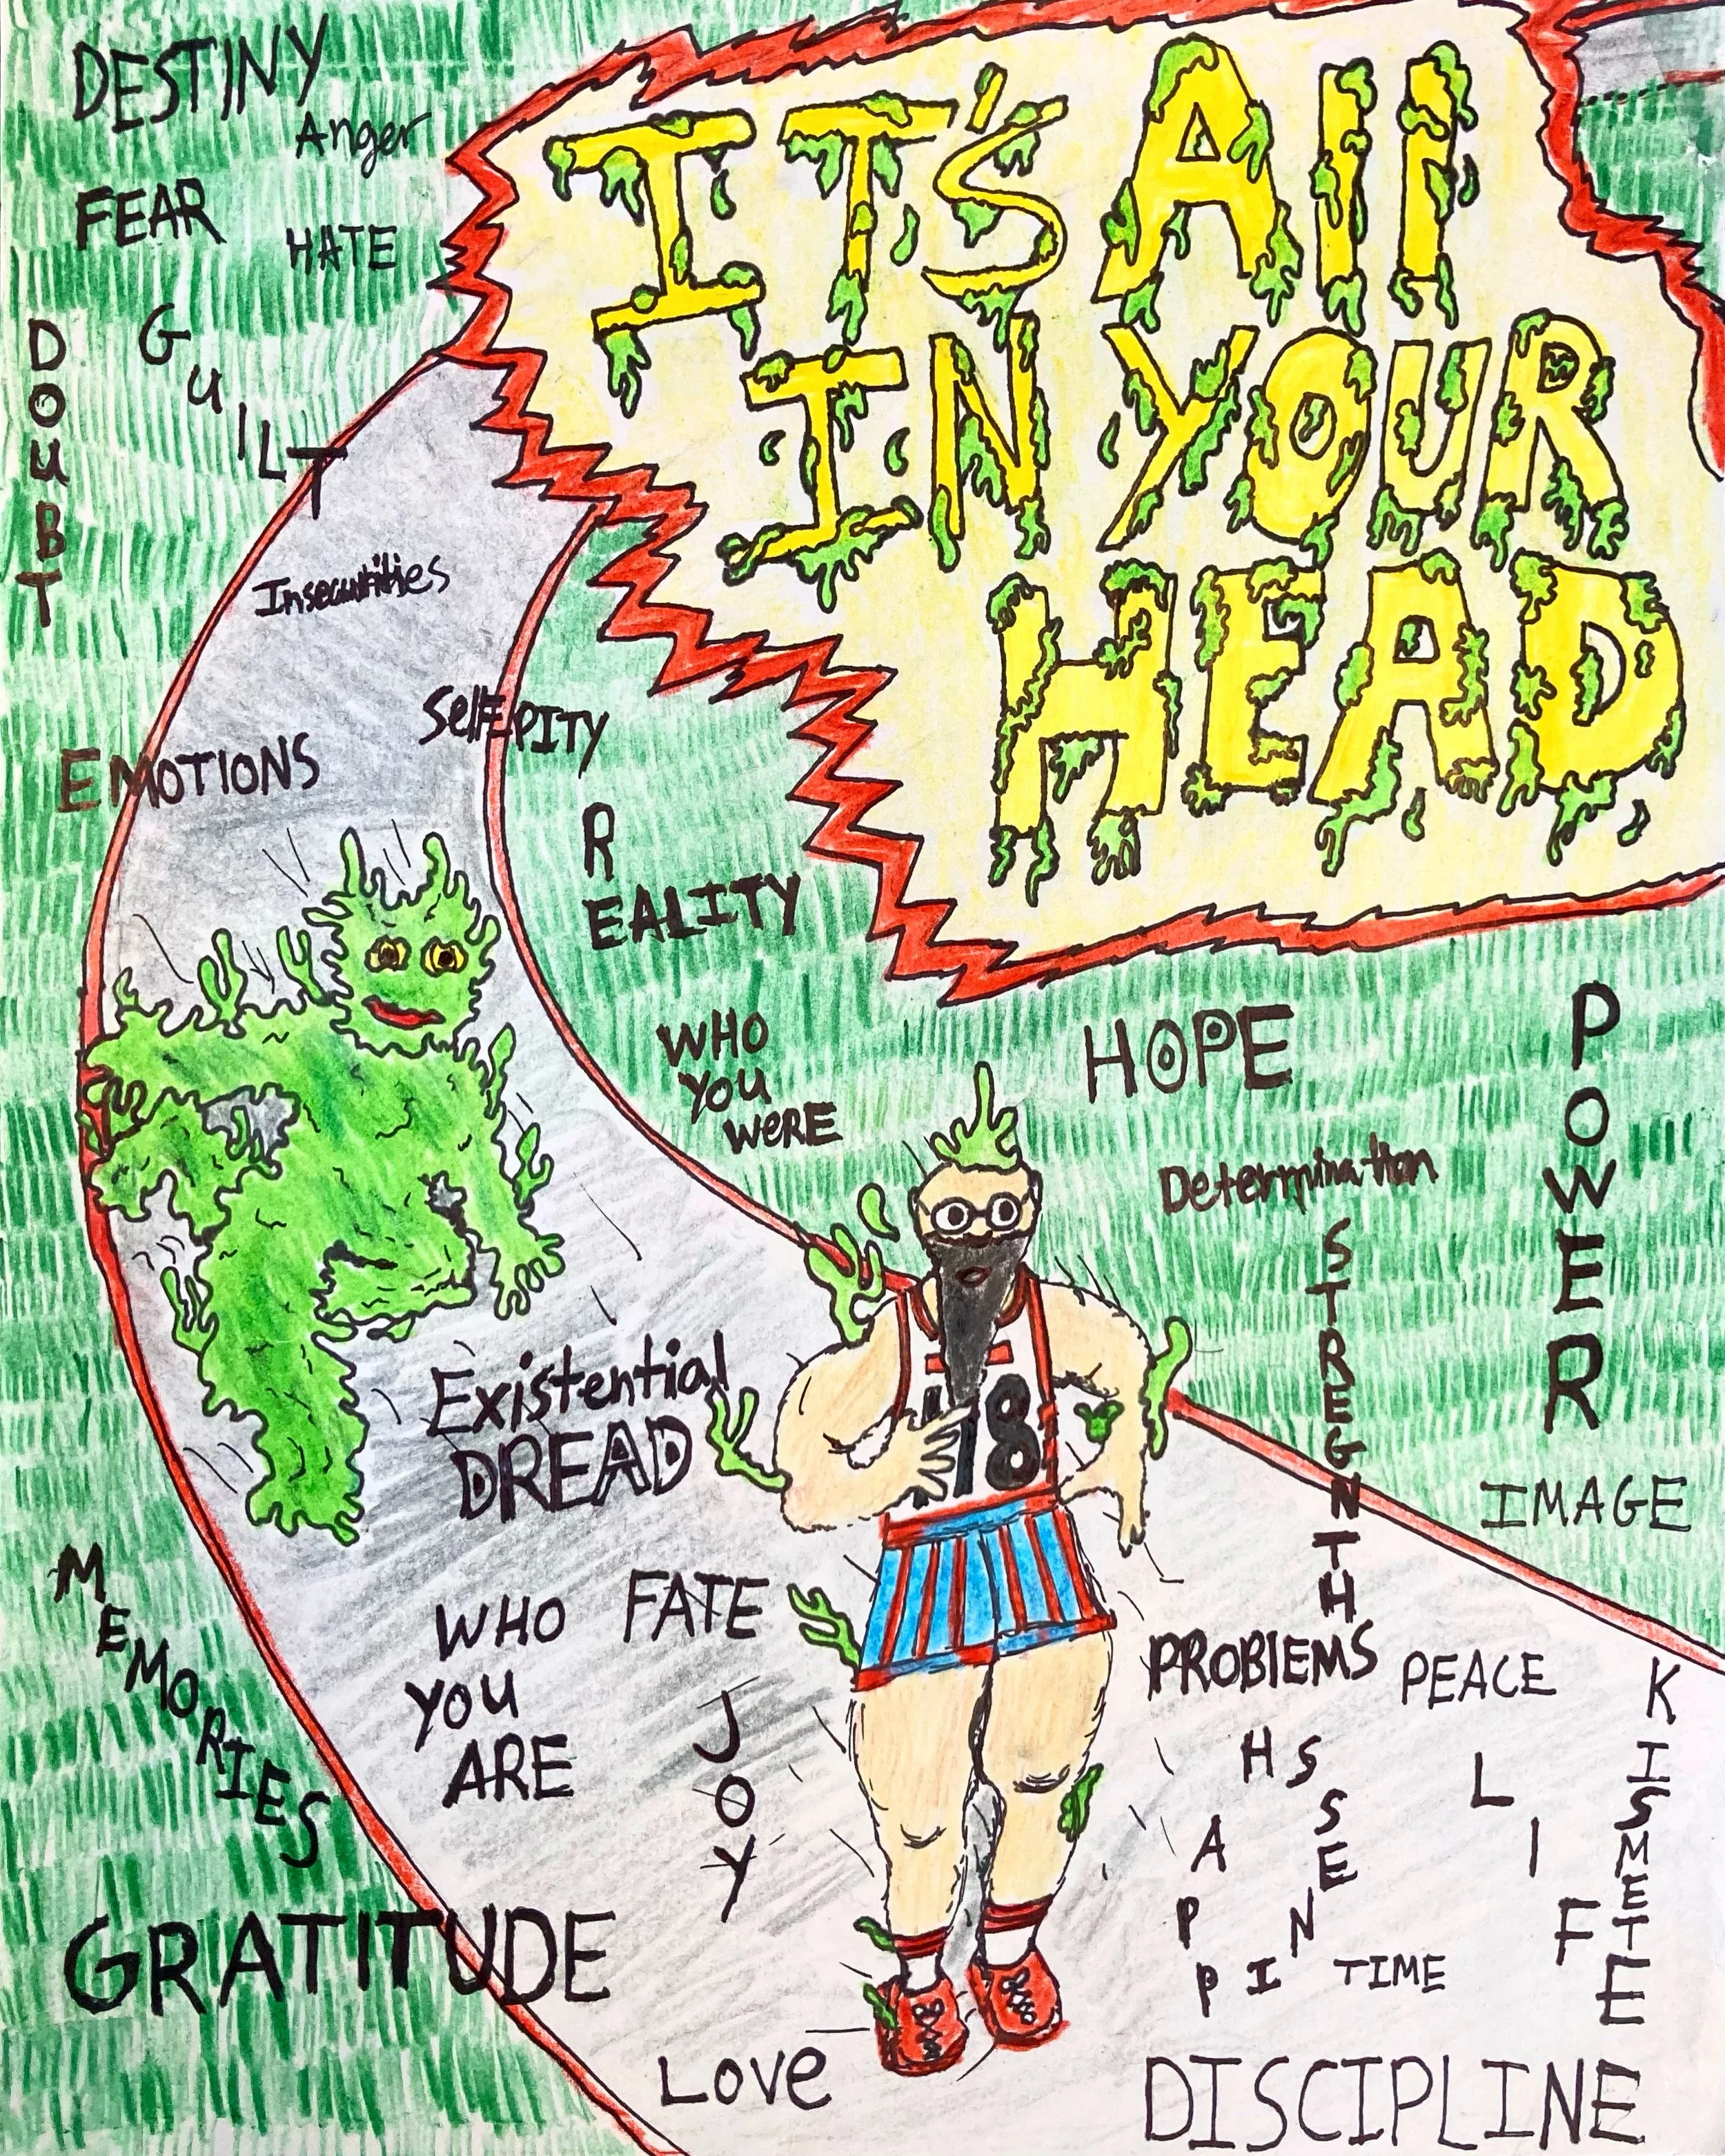 IT'S All
IN YOUR
HEAD
DESTINY
Anger
FEAR
HATE
GUILT
DOuBT
Insecurities
SelF PITY
EMOTIONS
REALITY
WHO
YOU
WeRE
HOPE
POWER
Determination
STREGNTH
Existential
DREAD
18
IMAGE
MEMORIES
WHO
YOU
ARE
FATE
JOY
PROBlEMS
PEACE
KISMETE
HAPPINESS
LIFE
TIME
GRATITUDE
Love
DISCIPLINE